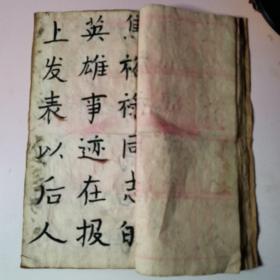 焦裕禄同志的
英雄事迹在报
上发表以后人